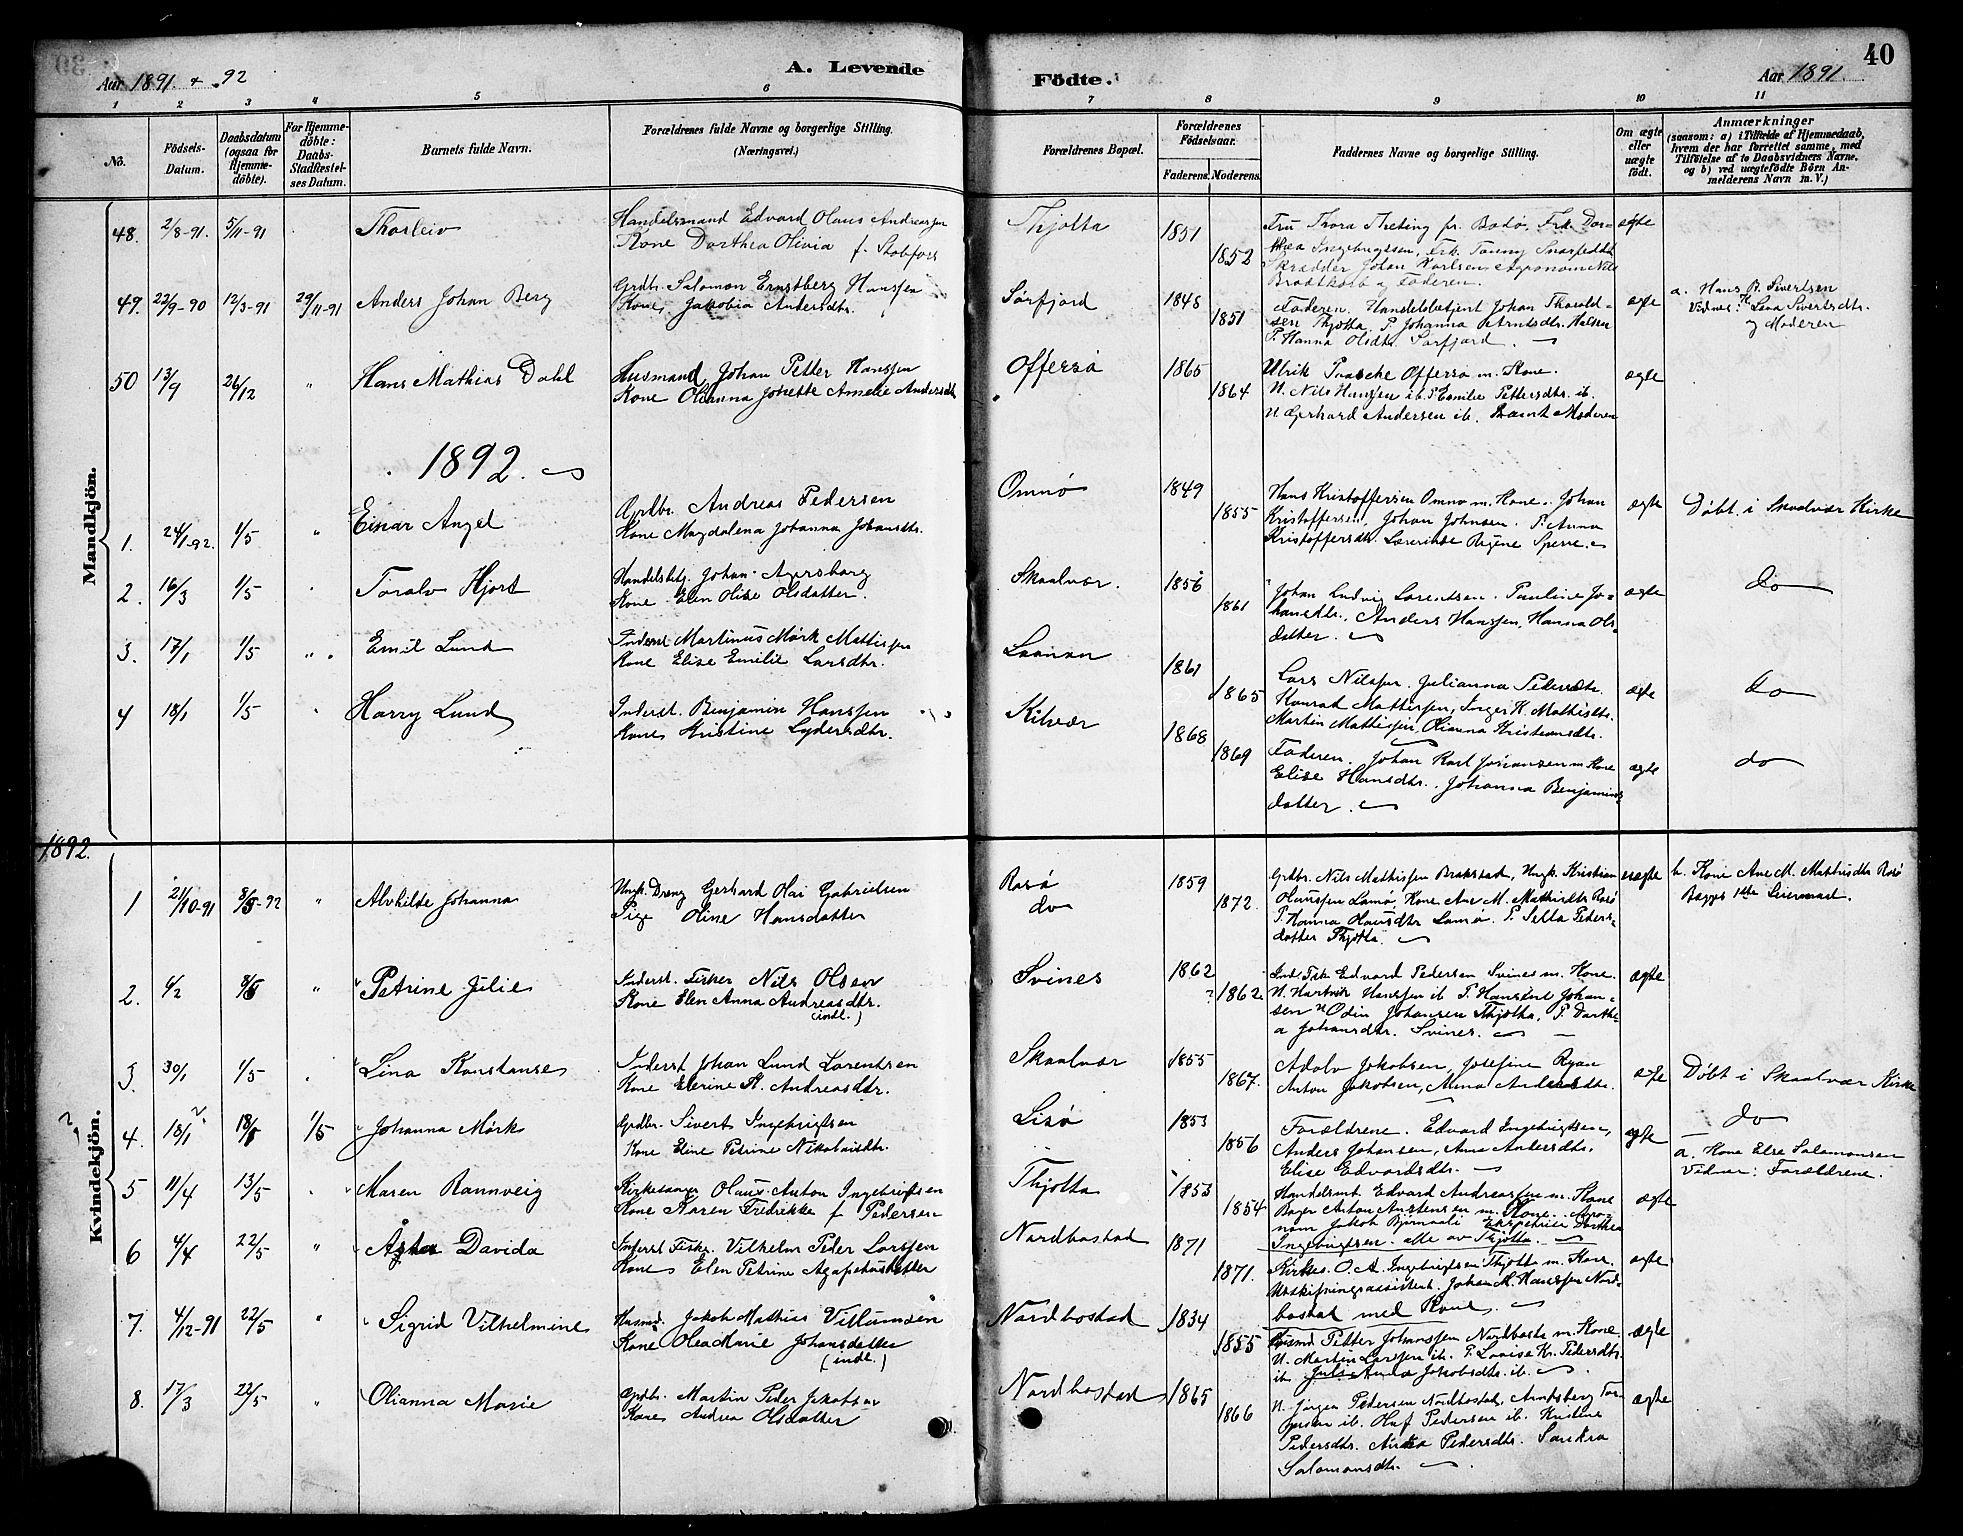 40
Aar 1891 + 92
A. Levende
Födte.
Aar 1891
1 2 3 4 5 6 7 8 9 10 11
No.
Födsels-Datum.
Daabsdatum (ogsaa for Hjemme-döbte).
For Hjemme-döbte: Daabs-Stadfæstel-ses Datum.
Barnets fulde Navn.
Forældrenes fulde Navne og borgerlige Stilling.
(Næringsvei.)
Forældrenes Bopæl.
Forældrenes Födselsaar.
Faderens. Moderens.
Faddernes Navne og borgerlige Stilling.
Om ægte eller uægte födt.
Anmærkninger
(saasom: a) i Tilfælde af Hjemmedaab,
hvem der har forrettet samme, med
Tilföielse af to Daabsvidners Navne.
og b) ved uægtefödte Börn An-
melderens Navn m. V.)
Mandkjön.
48. 2/8-91. 5/11-91 Thorleiv
Handelsmand Edvard Olaus Andreassen
Kone Dorthea Olivia f. Stobfors
Thjøtta 1851 1852
Fru Thora Threting fr. Bodø, Frk. Dor-
thea Ingebrigtsen, Frk. Fanny
Skrædder Johan Karlsen, Agronom Nils
Brodtkorb & Faderen.
ægte
49. 22/9-90 12/3-91 29/11-91 Anders Johan Berg
Grdbr. Salomon Ernstberg Hanssen
Kone Jakobia Andersdtr.
Sørfjord 1848 1851
Faderen. Handelsbetjent Johan Thorold-
sen Thjøtta, P. Johanna Arntsdtr.
P. Hanna Olsdtr. Sørfjord.
ægte
a. Hans P. Sivertsen
Vidner: Lena Sivertsdtr.
og Moderen
50 13/9 26/12 " Hans Mathias Dahl
Husmand Johan Petter Hanssen
Kone Olianna Jonette Amelie Andersdtr
Offersø 1865 1864
Ulrik Offersø m. Kone.
U. Nils Hanssen ib. P. Emilie Pettersdtr. ib.
U. Gerhard Andersen ib. samt Moderen
ægte
1892.
1. 24/1-92. 1/5 " Einar Angel
Grdbr. Andreas Pedersen
Kone Magdalena Johanna Johansdtr.
Omnø 1849 1855
Hans Kristoffersen Omnø m. Kone. Johan
Kristoffersen, Johan Johnsen. P. Anna
Kristoffersdtr. Lærerinde Regine Sperre.
ægte
Døbt i Skaalvær Kirke
2. 16/3 1/5 " Toralv Hjort
Handelsbetj. Johan Agersborg
Kone Elen Olise Olsdatter
Skaalvær. 1856 1861
Johan Ludvig Lorentsen. Pauline Jo-
hansdtr. Anders Hanssen, Hanna Ols-
datter.
ægte
do
3. 17/1 1/5 " Emil Lund
Inderst Martinus Mørk Mathissen
Kone Elise Emilie Larsdtr.
1861 1865
Lars Nilssen. Julianna Pedersdtr.
Konrad Mathissen, Inger H. Mathisdtr.
Martin Mathissen, Olianna Kristiansdtr.
ægte
do
4 18/1 1/5 " Harry Lund
Inderst. Benjamin Hanssen
Kone Kristine Lydersdtr.
Kilvær 1868 1869
Faderen. Johan Karl Johansen m Kone
Elise Hansdtr. Johanna Benjamins-
datter.
ægte
do
1892.
Kvindekjön.
1 21/10-91 8/5-92 " Alvhilde Johanna
Ungk. Dreng Gerhard Olai Gabrielsen
Pige Oline Hansdatter
Rosø
do
1859 1872.
Grdbr. Nils Mathissen Brakstad, Ungk. Kristian
Olaussen Lamø, Kone Ane M. Mathisdtr Rosø
P. Hanna Olausdtr Lamø. P. Peders-
datter Thjøtta.
uægte
b. Kone Ane M. Mathisdtr Rosø
Begges 1ste Leiermaal.
2. 4/2 8/5 " Petrine Julie
Inderst. Fisker Nils Olsen
Kone Elen Anna Andreasdtr.
(indl.)
Svines 1862 ? 1862.
Ind. Fisk Edvard Pedersen Svines m. Kone.
U. Hartvik Hanssen ib P. Hansine Johan-
sen U Odin Johansen Thjøtta, P. Dorthe-
a Johansdtr. Svines.
ægte
3. 30/1 1/5 " Lina Konstanse
Inderst Johan Lund Lorentsen
Kone Elerine K. Andreasdtr.
Skaalvær 1855 1867.
Adolv Jakobsen, Josefine Ryan
Anton Jakobsen, Anna Andersdtr.
ægte
Døbt i Skaalvær Kirke
4. 18/1 ? 18/1 1/5 Johanna Mørk
Grdbr. Sivert Ingebrigtsen
Kone Eline Petrine Nikolaisdtr.
Lisø 1853 1856
Forældrene. Edvard Ingebrigtsen,
Anders Johansen, Anna Andersdtr.
Elise Edvardsdtr.
ægte
do
a. Kone Else Salamonsen
Vidner: Forældrene.
5 11/4 13/5 " Maren Rannveig
Kirkesanger Olaus Anton Ingebrigtsen
Kone Karen Fredrikke f Pedersen
Thjøtta 1853 1854
Handelsmt. Edvard Andreassen m. Kone
Bager Anton Austensen m. Kone. Agro-
nom Jakob Dorthea
Ingebrigtsen. alle av Thjøtta.
ægte
6 4/4 22/5 " Åsta Davida
Inderst Fisk. Vilhelm Peder Larssen
Kone Elen Petrine Agapetusdatter
Nordbostad 1871 1871.
Kirkes. O. A. Ingebrigtsen Thjøtta m. Kone.
Udskiftningsassistent Johan M. Hanssen Nord-
bostad med Kone.
ægte
7. 4/12-91 22/5 " Sigrid Vilhelmine
Husmd. Jakob Mathias Villumsen
Kone Olea Marie Johansdatter
(indl.)
Nordbostad 1834 1855
Husmd Petter Johanssen Nordbosta m. Kone.
U. Martin Larssen ib. P. Lovise Kr. Pedersdtr.
ib. Jakobsdtr. ib.
ægte
8. 17/3 22/5 " Olianna Marie
Grdbr. Martin Peder Jakobsen
Kone Andrea Olsdatter
Nordbostad 1865 1866
U. Jørgen Pedersen Nordbostad, Arntsberg Tor-
gersen ib. Oluf Pedersen ib. Kristine
Pedersdtr. Anna Pedersdtr. Sandra
Salomonsdtr.
ægte